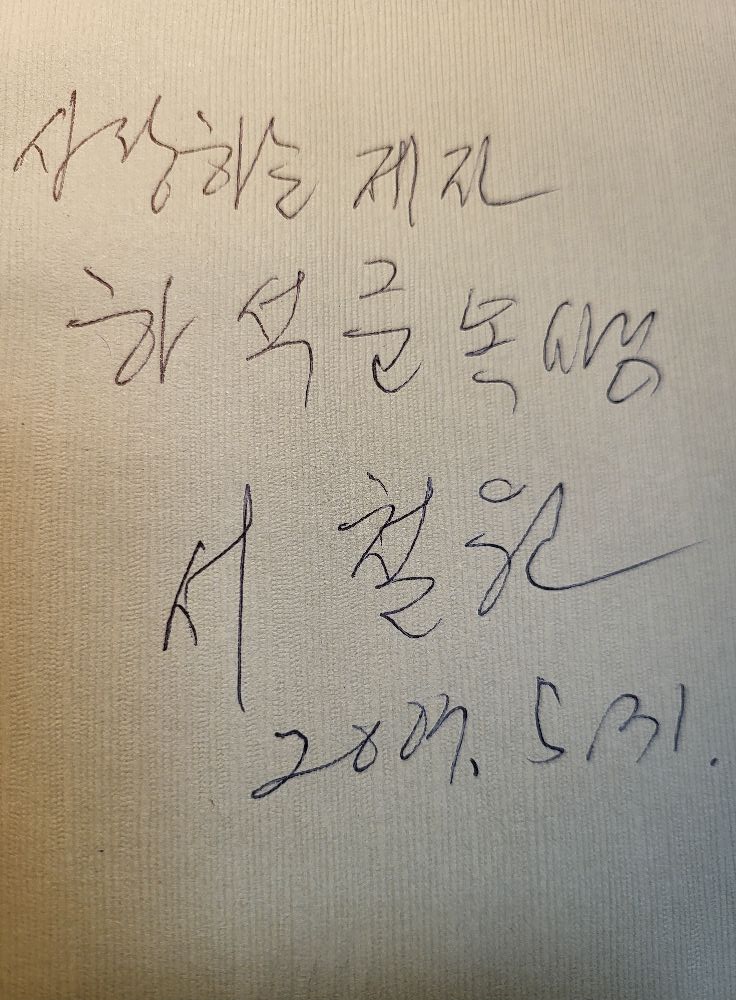 사랑하는 제자
하석근 목사님
서철원
2007. 5. 31.